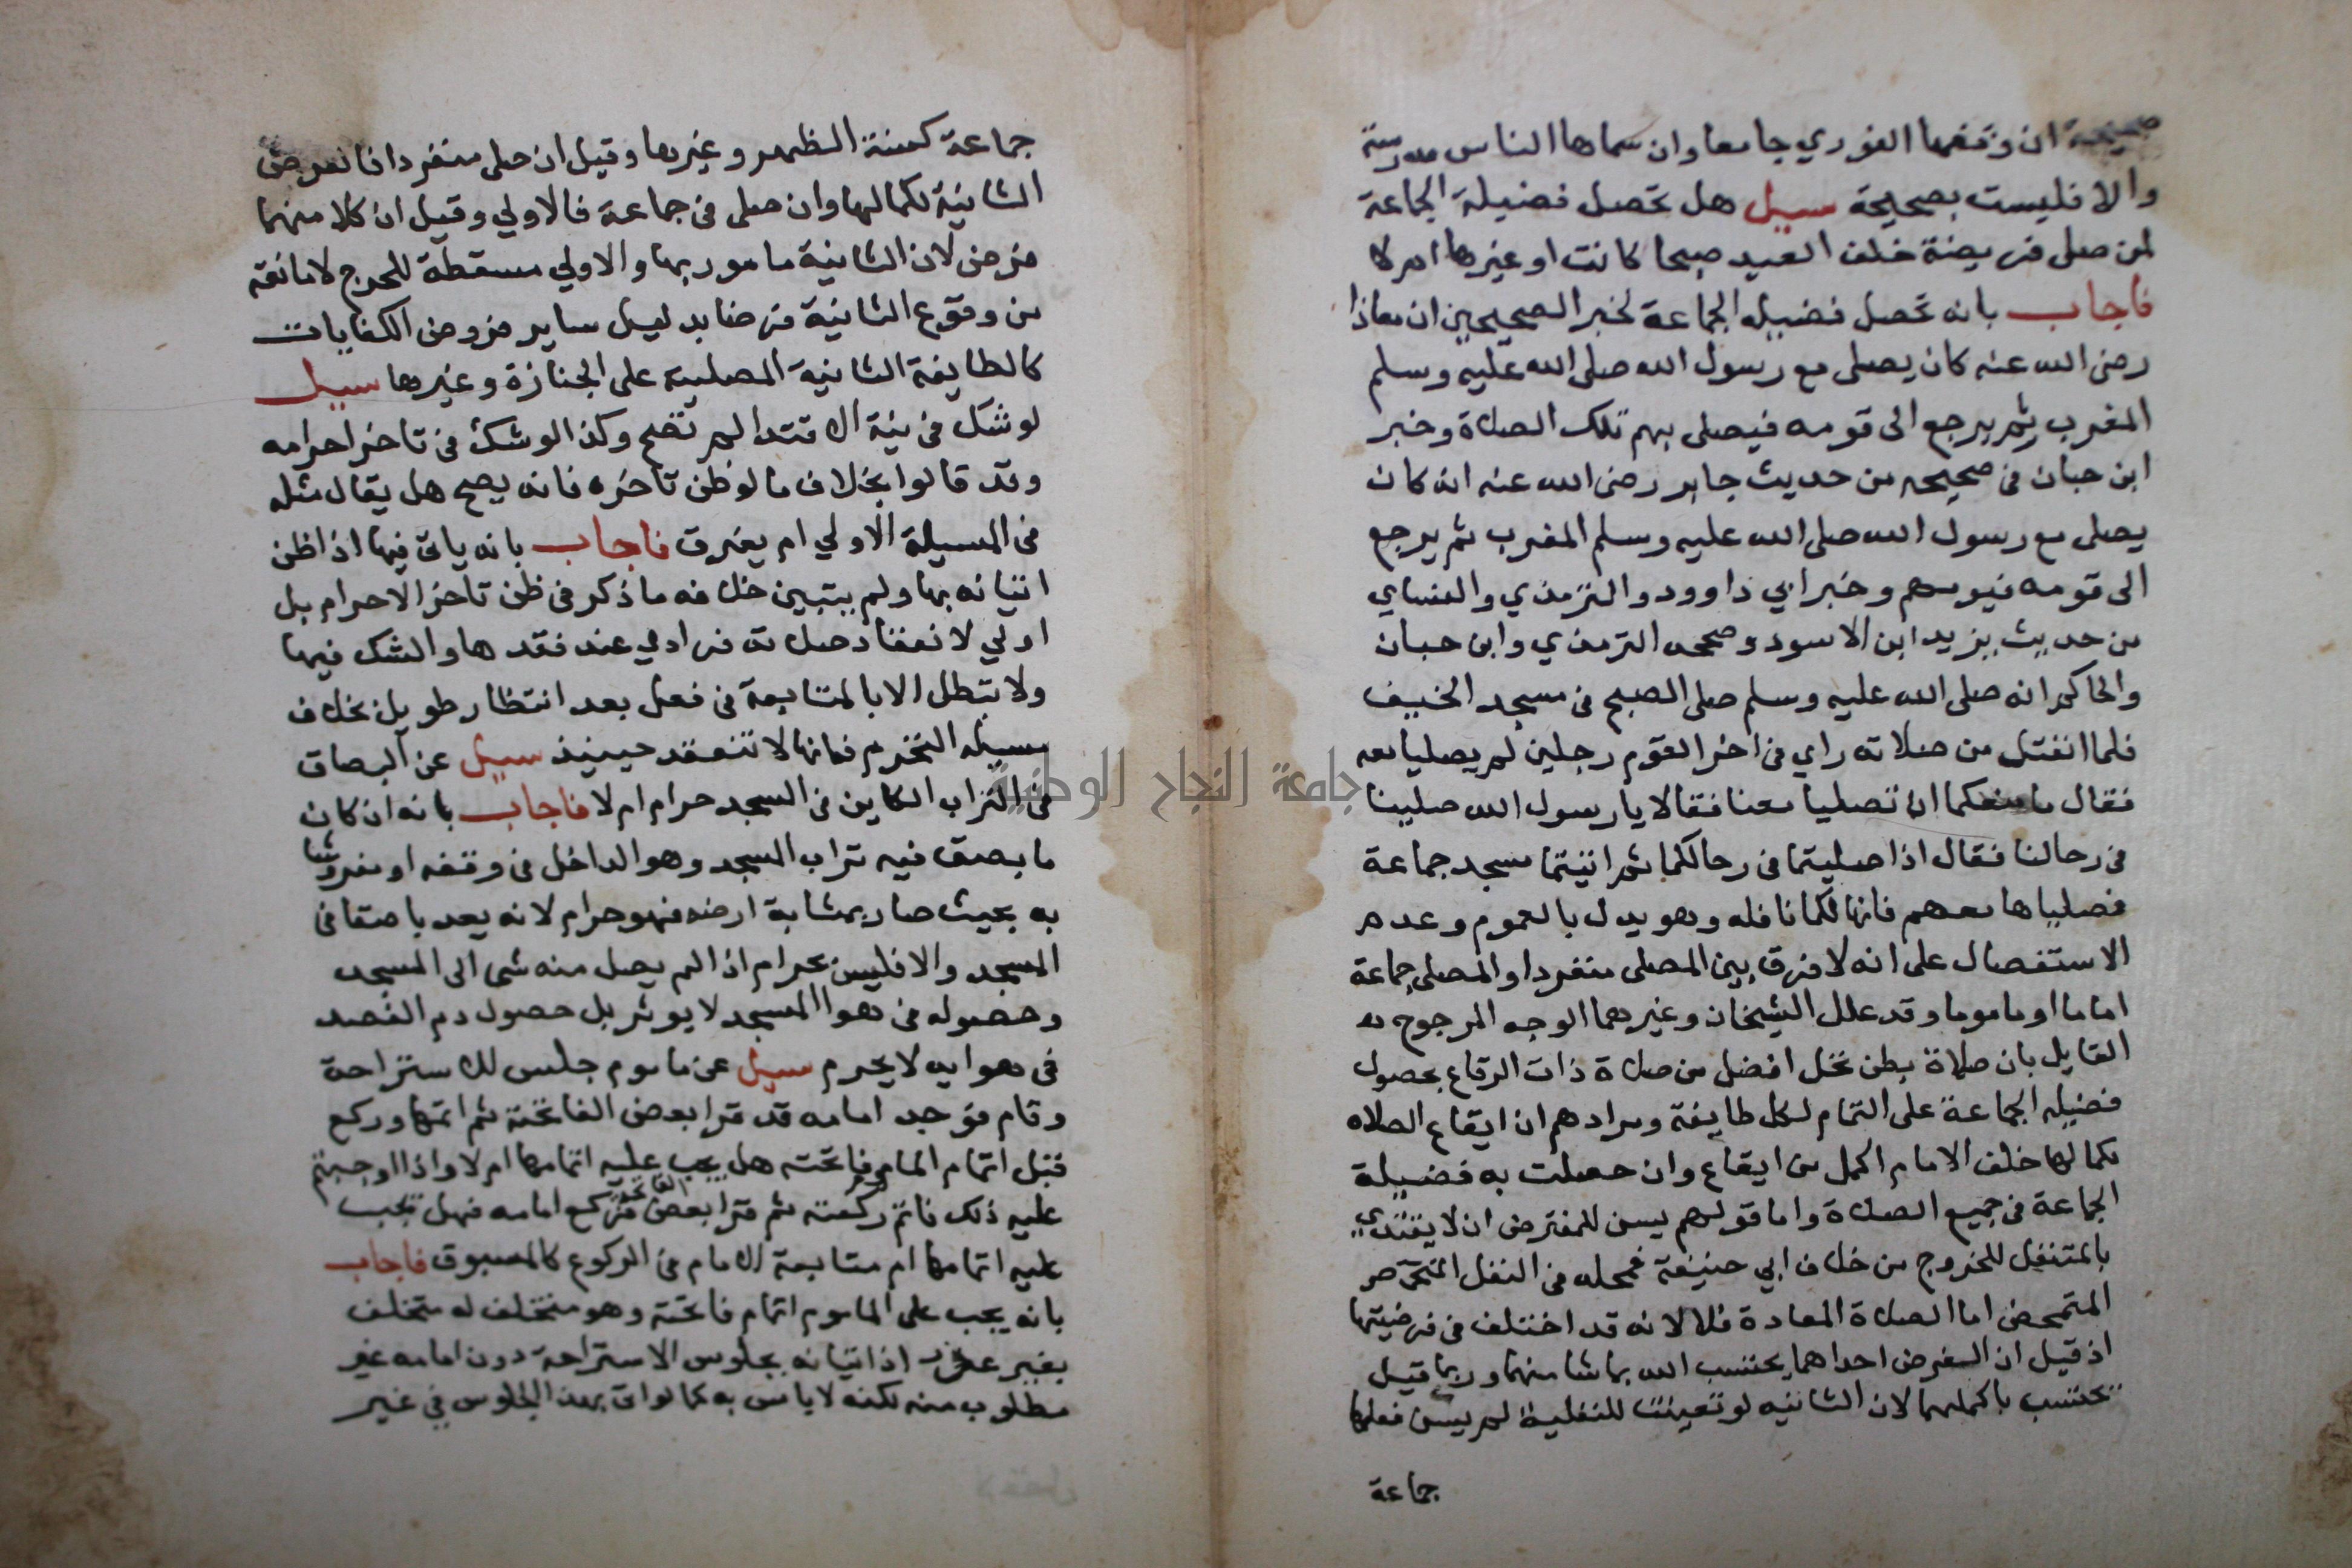 صحيحة ان وقفها الغوري جامعا وان سماها الناس مدرسة
والا فليست بصحيحة سيل هل تحصل فضيلة الجماعة
لمن صلى فريضة خلف العيد صبحا كانت او غيرها ام لا
فاجاب بانه تحصل فضيله الجماعة لخبر الصحيحين ان معاذا
رضى الله عنه كان يصلى مع رسول الله صلى الله عليه وسلم
المغرب ثم يرجع الى قومه فيصلى بهم تلك الصلاة وخبر
ابن حبان فى صحيحه من حديث جابر رضى الله عنه انه كان
يصلى مع رسول الله صلى الله عليه وسلم المغرب ثم يرجع
الى قومه فيومهم وخبر ابي داوود والترمذي والنساي
من حديث يزيد ابن الاسود وصححه الترمذي وابن حبان
والحاكم انه صلى الله عليه وسلم صلى الصبح فى مسجد الخيف
فلما انفتل من صلاته راي فى اخر القوم رجلين لم يصليا معه
فقال ما منعكما ان تصليا معنا فقالا يا رسول الله صلينا
فى رحالنا فقال اذا صليتما فى رحالكما ثم اتيتما مسجد جماعة
فصلياها معهم فانها لكما نافله وهو يدل بالعموم وعدم
الاستفصال على انه لا فرق بين المصلى منفردا والمصلى جماعة
اماما او ماموما وقد علل الشيخان وغيرهما الوجه المرجوح
القايل بان صلاة بطن نخل افضل من صلاة ذات الرقاع بحصول
فضيله الجماعة على التمام لكل طايفة ومرادهم ان ايقاع الصلاه
بكمالها خلف الامام اكمل من ايقاع وان حصلت به فضيلة
الجماعة فى جميع الصلاة واما قولهم يسن للمفترض ان لا يقتدي
بالمتنفل للخروج من خلاف ابي حنيفة فمحله فى النفل
المتمحض اما الصلاة المعادة فلا لانه قد اختلف فى فرضيتها
اذ قيل ان الفرض احداهما يحتسب الله بما شا منهما وربما قيل
تحتسب باكملهما لان الثانيه لو تعينت للنفلية لم يسن فعلها
جماعة
جماعة كسنة الظهر وغيرها وقيل ان صلى منفردا فالفرض
الثانية لكمالها وان صلى فى جماعة فالاولي وقيل ان كلا منهما
فرض لان الثانية مامور بها والاولي مسقطة للحرج لا مانعه
من وقوع الثانية فرضا بدليل ساير فروض الكفايات
كالطايفة الثانية المصلية على الجنازة وغيرها سيل
لو شك فى نية الاقتدا لم تصح وكذا لو شك فى تاخر احرامه
وقد قالوا بخلاف ما لو ظن تاخره فانه يصح هل يقال مثله
فى المسيلة الاولي ام يفرق فاجاب بانه ياتى فيها اذا ظن
اتيانه بها ولم يتبين خلافه ما ذكر فى ظن تاخر الاحرام بل
اولي لانعقاد صلاته فرادي عند فقدها والشك فيها
ولا تبطل الا بالمتابعة فى فعل بعد انتظار طويل بخلاف
مسيله التحرم فانها لا تنعقد حينيذ سيل عن البصاق
فى التراب الكاين فى المسجد حرام ام لا فاجاب بانه ان كان
ما بصق فيه تراب المسجد وهو الداخل فى وقفه او مفروشا
به بحيث صار بمثابة ارضه فهو حرام لانه يعد باصقا فى
المسجد والا فليس بحرام اذا لم يصل منه شى الى المسجد
وحصوله فى هوا المسجد لا يوثر بل حصول دم الفصد
فى هوايه لا يحرم سيل عن ماموم جلس للاستراحة
وقام فوجد امامه قد قرا بعض الفاتحة ثم اتمها وركع
قبل اتمام الماموم فاتحته هل يجب عليه اتمامها ام لا واذا اوجبتم
عليه ذلك فاتم ركعته ثم قرا بعض الفاتحة فركع امامه فهل تجب
عليه اتمامها ام متابعة الامام فى الركوع كالمسبوق فاجاب
بانه يجب على الماموم اتمام فاتحته وهو متخلف له متخلف
بغير عذر اذ اتيانه بجلوس الاستراحة دون امامه غير
مطلوب منه لكنه لا باس به كما لو اتى بهذا الجلوس في غير
جامعة النجاح الوطنية